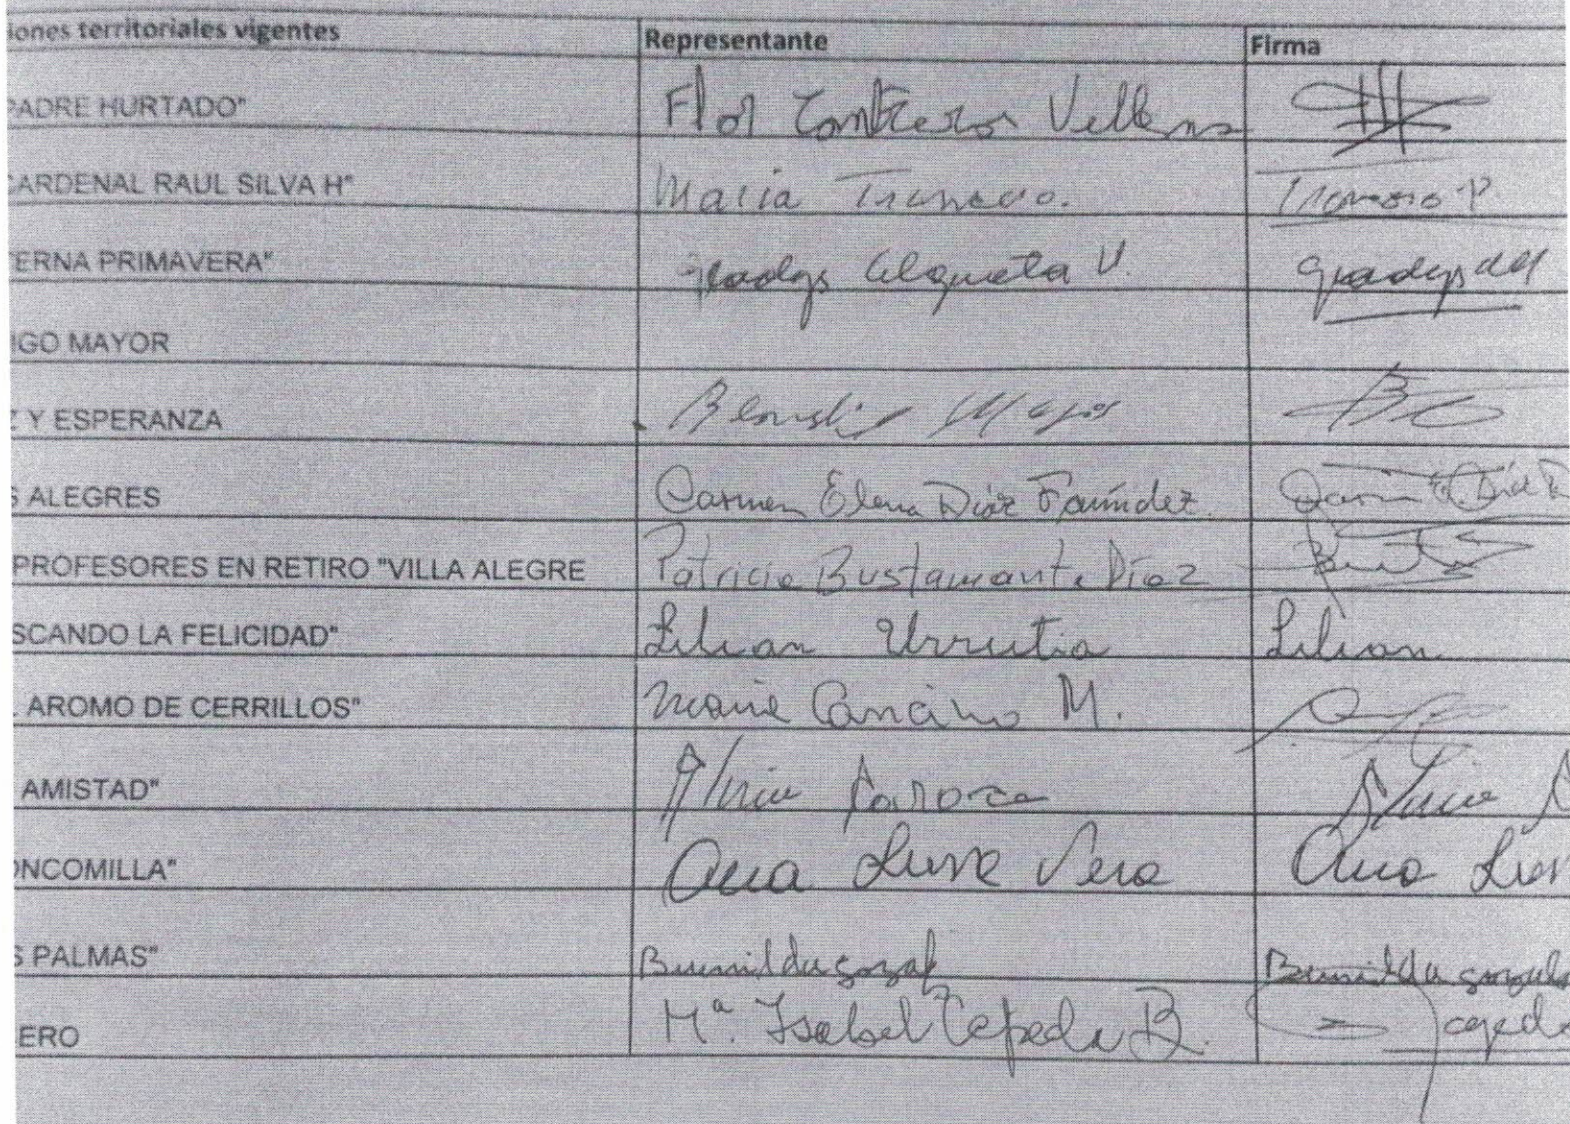 iones territoriales vigentes Representante Firma
PADRE HURTADO" Flor Contreras
CARDENAL RAUL SILVA H" Maria
ERNA PRIMAVERA" Gladys V. Gladys
IGO MAYOR
Y ESPERANZA
S ALEGRES Carmen Elena Díaz Faúndez
PROFESORES EN RETIRO "VILLA ALEGRE Patricia Bustamante Díaz
SCANDO LA FELICIDAD" Lilian Urrutia Lilian
AROMO DE CERRILLOS" Maria Cancino M.
AMISTAD"
ONCOMILLA" Ana Luna Vera Ana
S PALMAS" Brunilda Brunilda
ERO Mª. Isabel Cepeda B. cepeda